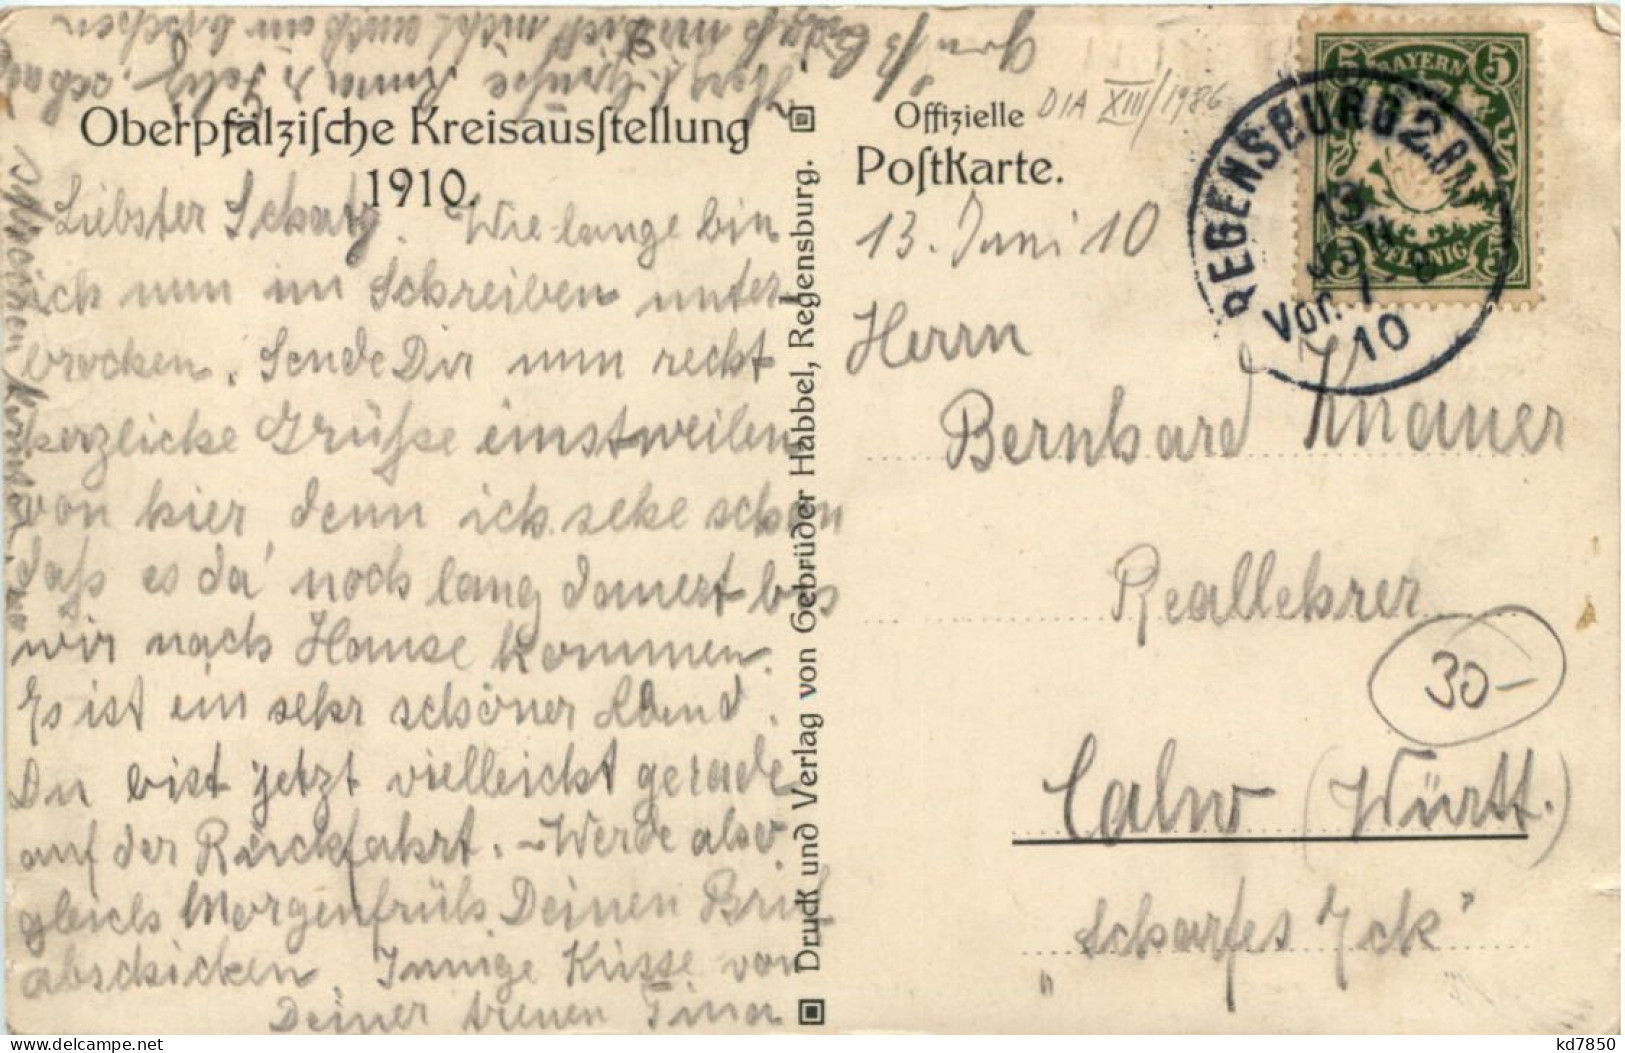 Oberpfälzische Kreisausstellung
1910.
Liebster Schatz. Wie lange bin
ich nun im Schreiben unter
brochen. Sende Dir nun recht
herzliche Grüße einstweilen
von hier, denn ich sehe schon
daß es da noch lang dauert bis
wir nach Hause kommen.
Es ist ein sehr schöner Abend.
Du bist jetzt vielleicht gerade
auf der Rückfahrt. – Werde also
gleich Morgenfrüh Deinen Brief
abschicken. Innige Küsse von
Deiner treuen Tina
Herzl. Grüße Anna &
Druck und Verlag von Gebrüder Habbel, Regensburg.
Offizielle
Postkarte.
DIA XIII/1986
13. Juni 10
BAYERN
5 5
PFENNIG
REGENSBURG 2. BN
13
JUN
Vor. 7-8
10
Herrn
Bernhard Knauer
Reallehrer
30-
Calw (Württ.)
„scharfes Eck"
kd7850